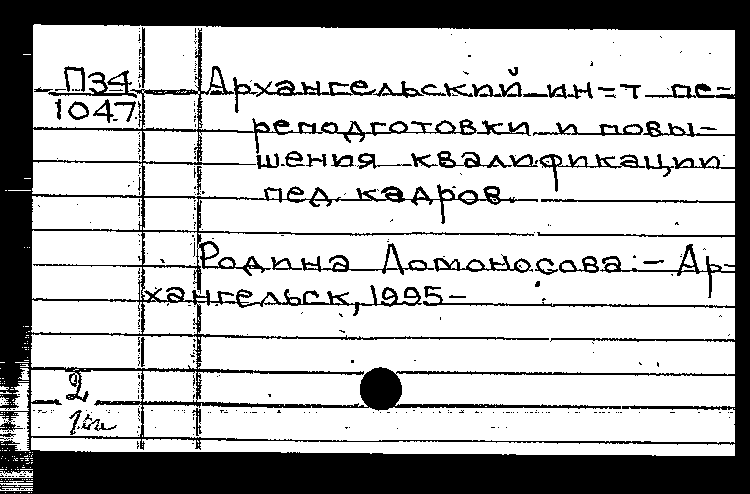 П34
1047
Архангельский ин-т пе-
реподготовки и повы-
шения квалификации
пед. кадров.
Родина Ломоносова. - Ар-
хангельск, 1995-
2